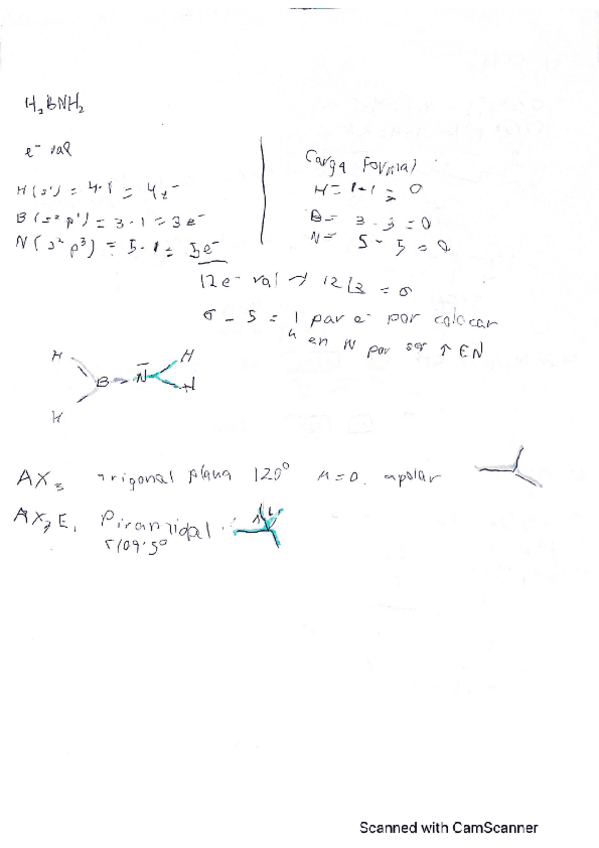 H₂BNH₂
e⁻ val
H (s¹) = 4·1 = 4e⁻
B (s² p¹) = 3·1 = 3e⁻
N (s² p³) = 5·1 = 5e⁻
Carga Formal
H = 1-1 = 0
B = 3-3 = 0
N = 5-5 = 0
12 e⁻ val → 12/2 = 6
6 - 5 = 1 par e⁻ por colocar
↳ en N por ser ↑ EN
H H
B N
H H
AX₃ trigonal plana 120° μ=0. apolar
AX₃E₁ Piramidal
<109.5°
Scanned with CamScanner